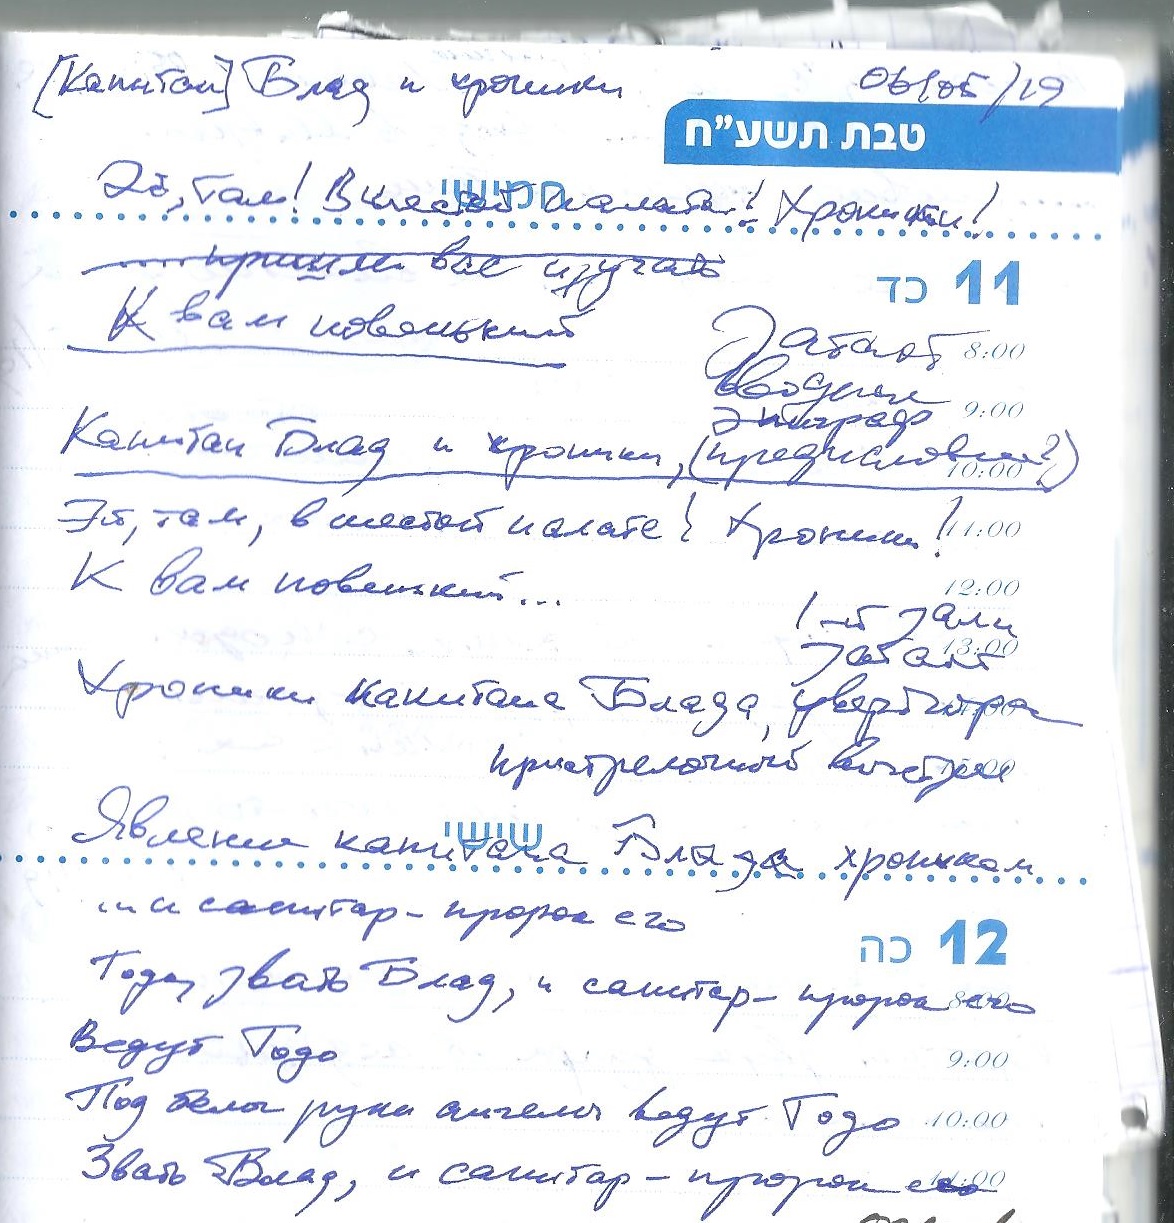 [Капитан] Блад и хроники 06/05/19
טבת תשע״ח
Эй, там! В шестой палате! Хроники!
חמישי
..... пришли вас изучать
כד 11
К вам новенький
Затакт 8:00
вводная
эпиграф 9:00
Капитан Блад и хроники, (предисловие?)
10:00
Эй, там, в шестой палате! Хроники!
11:00
К вам новенький...
12:00
1-й залп
затакт 13:00
Хроники капитана Блада, увертюра
пристрелочный выстрел
Явление капитана Блада хроникам
שישי
... и санитар - пророк его
כה 12
Годо, звать Блад, и санитар - пророк его
8:00
Ведут Годо
9:00
Под белы руки ангелы ведут Годо
10:00
Звать Влад, и санитар - пророк его
11:00